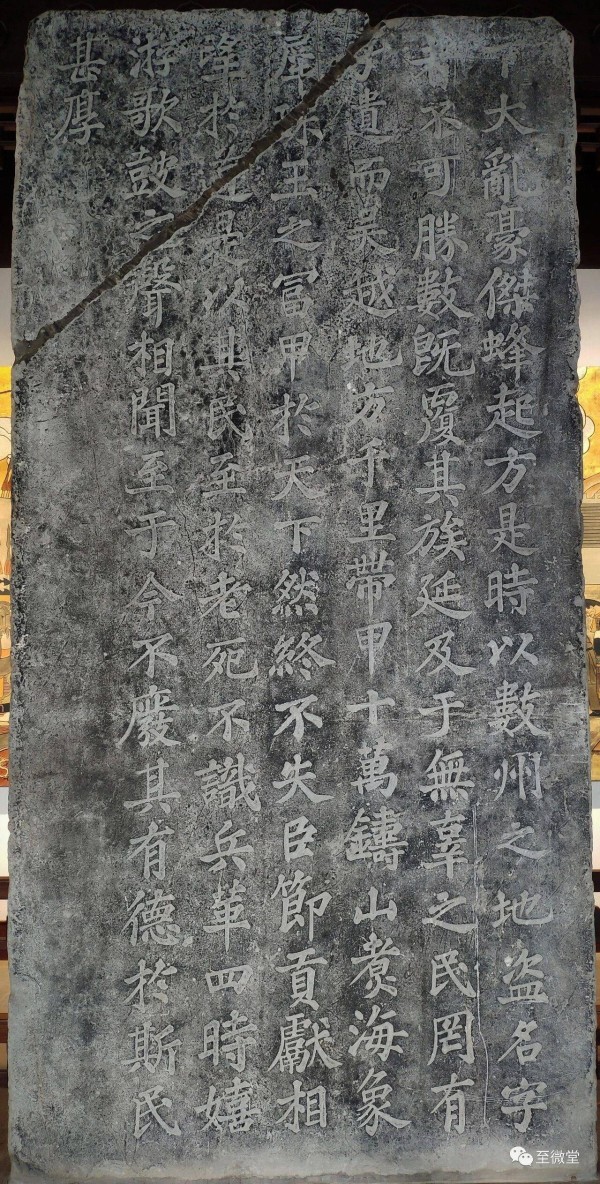 下大亂豪傑蜂起方是時以數州之地盜名字
者不可勝數既覆其族延及于無辜之民罔有
孑遺而吳越地方千里帶甲十萬鑄山煑海象
犀珠玉之富甲於天下然終不失臣節貢獻相
望於道是以其民至於老死不識兵革四時嬉
游歌鼓之聲相聞至于今不廢其有德於斯民
甚厚
至微堂